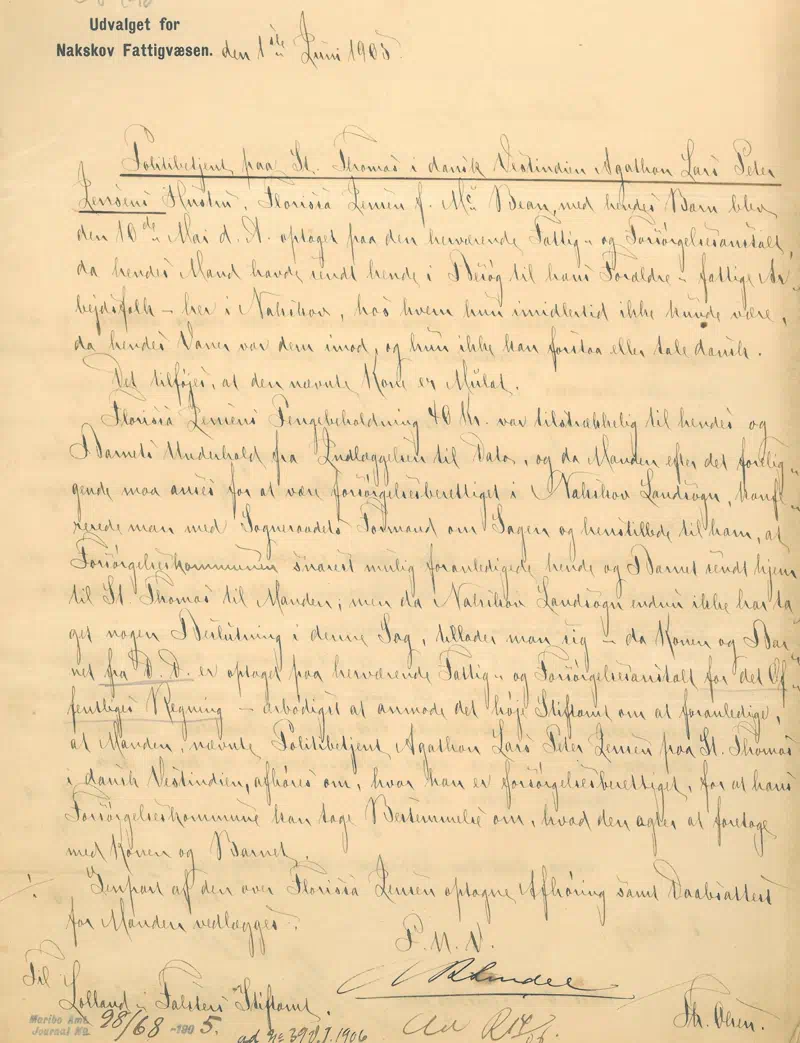 Udvalget for
Nakskov Fattigvæsen. den 1ste Juni 1905.
Politibetjent paa St. Thomas i dansk Vestindien Agathon Lars Peter
Jensens Hustru, Florissa Jensen f. Mc Bean, med hendes Barn blev
den 10de Mai d. A. optaget paa den herværende Fattig- og Forsørgelsesanstalt,
da hendes Mand havde sendt hende i Besøg til hans Forældre - fattige Ar-
bejdsfolk - her i Nakskov, hos hvem hun imidlertid ikke kunde være,
da hendes Vaner var dem imod, og hun ikke kan forstaa eller tale dansk.
Det tilføjes, at den nævnte Kone er Mulat.
Florissa Jensens Pengebeholdning 40 Kr. var tilstrækkelig til hendes og
Barnets Underhold fra Indlæggelsen til Dato, og da Manden efter det forelig-
gende maa anses for at være forsørgelsesberettiget i Nakskov Landsogn, konfe-
rerede man med Sogneraadets Formand om Sagen og henstillede til ham, at
Forsørgelseskommunen snarest mulig foranledigede hende og Barnet sendt hjem
til St. Thomas til Manden; men da Nakskov Landsogn endnu ikke har ta-
get nogen Beslutning i denne Sag, tillader man sig - da Konen og Bar-
net fra D. D. er optaget paa herværende Fattig- og Forsørgelsesanstalt for det Of-
fentliges Regning - ærbødigst at anmode det høje Stiftamt om at foranledige,
at Manden, nævnte Politibetjent Agathon Lars Peter Jensen paa St. Thomas
i dansk Vestindien, afhøres om, hvor han er forsørgelsesberettiget, for at hans
Forsørgelseskommune kan tage Bestemmelse om, hvad den agter at foretage
med Konen og Barnet.
Genpart af den over Florissa Jensen optagne Afhøring samt Daabsattest
for Manden vedlægges.
P. U. V.
Til
Lolland-Falsters Stiftamt.
Th. Olsen.
Maribo Amt.
Journal No. 98/68 -1905.
ad No 39 V.J. 1906